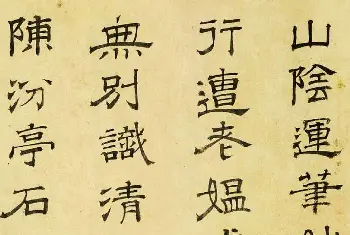 山陰運筆
行遭老媼
無別識清
陳汾亭石